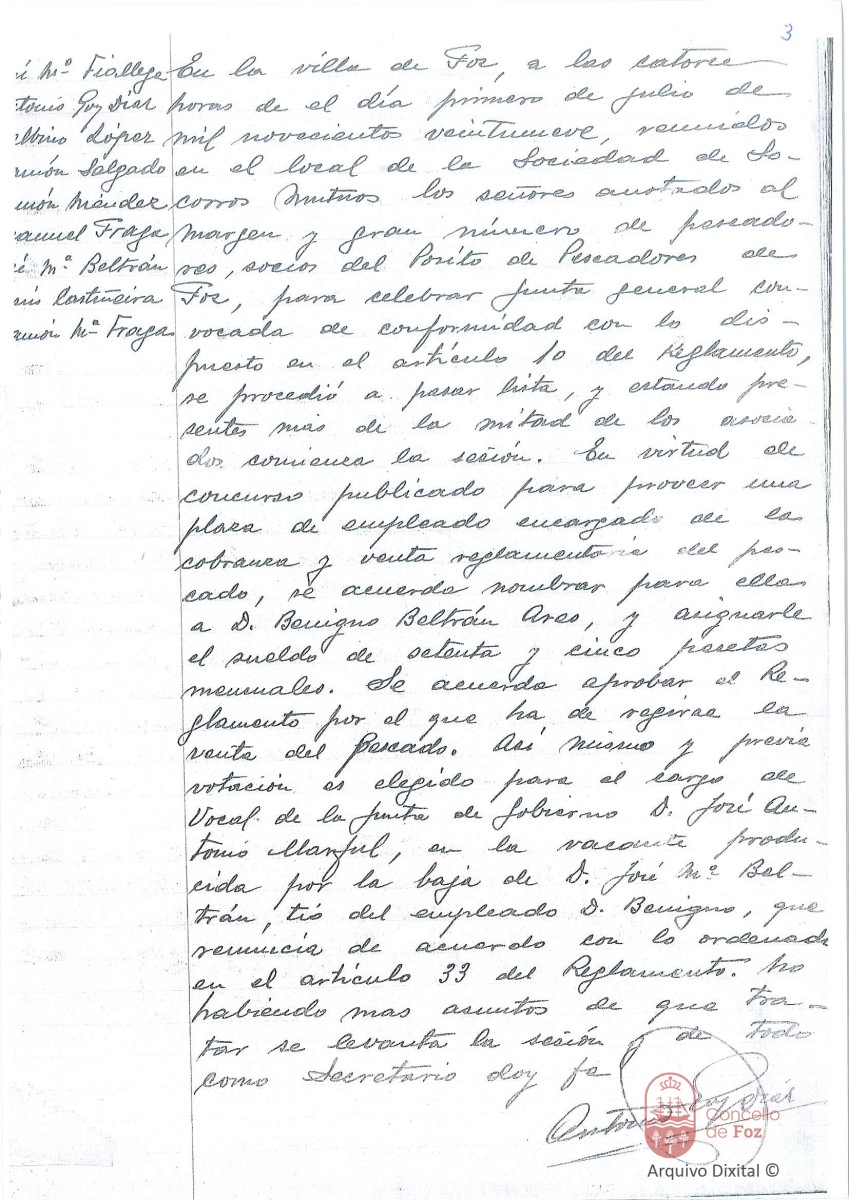 3
í Mª Fiallega
ntonio Goy Díaz
lbino López
amón Salgado
amón Méndez
anuel Fraga
é Mª Beltrán
uis Castiñeira
amón Mª Fragas
En la villa de Foz, a las catorce
horas de el día primero de julio de
mil novecientos veintinueve, reunidos
en el local de la Sociedad de So-
corros Mutuos los señores anotados al
margen y gran número de pescado-
res, socios del Pósito de Pescadores de
Foz, para celebrar Junta general con-
vocada de conformidad con lo dis-
puesto en el artículo 10 del Reglamento,
se procedió a pasar lista, y estando pre-
sentes más de la mitad de los asocia-
dos comienza la sesión. En virtud de
concurso publicado para proveer una
plaza de empleado encargado de la
cobranza y venta reglamentaria del pes-
cado, se acuerda nombrar para ella
a D. Benigno Beltrán Ares, y asignarle
el sueldo de setenta y cinco pesetas
mensuales. Se acuerda aprobar el Re-
glamento por el que ha de regirse la
venta del Pescado. Así mismo y previa
votación es elegido para el cargo de
Vocal de la Junta de Gobierno D. José An-
tonio Marful, en la vacante produ-
cida por la baja de D. José Mª Bel-
trán, tío del empleado D. Benigno, que
renuncia de acuerdo con lo ordenado
en el artículo 33 del Reglamento. No
habiendo mas asuntos de que tra-
tar se levanta la sesión y de todo
como Secretario doy fe
Antonio Goy Díaz
Concello
de Foz
Arquivo Dixital ©